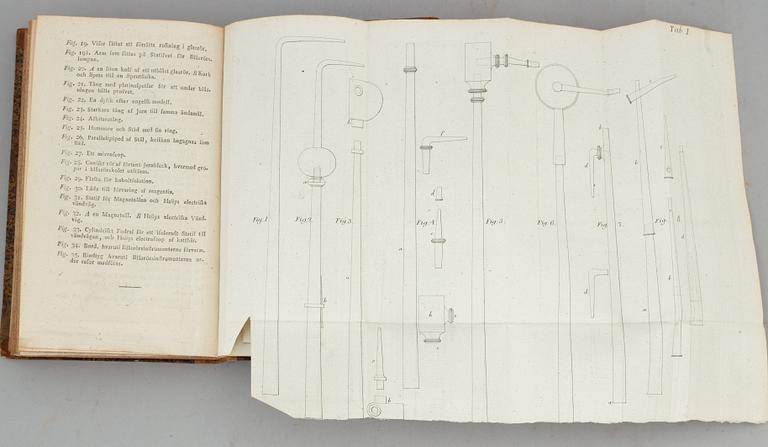 Fig. 19. Visar sättet att förrätta rostning i glasrör.
Fig. 19½. Arm som fättes på Stativet för Blåsrörs-
lampan.
Fig. 20. A en liten kolf af ett utblåst glasrör. B Kork
och Spets till en Sprutflaska.
Fig. 21. Tång med platinaspetsar för att under blås-
ningen hålla profvet.
Fig. 22. En dylik efter engelsk modell.
Fig. 23. Starkare tång af Jern till samma ändamål.
Fig. 24. Afbitartång.
Fig. 25. Hammare och Städ med sin ring.
Fig. 26. Parallelipiped af Stål, hvilken begagnas som
Städ.
Fig. 27. Ett microscop.
Fig. 28. Coniskt rör af förtent Jernbleck, hvarmed gro-
par i blåsrörskolet utskäras.
Fig. 29. Flaska för koboltsolution.
Fig. 30. Låda till förvaring af reagentia.
Fig. 31. Statif för Magnetnålen och Haüys electriska
vändvåg.
Fig. 32. A en Magnetnål. B Haüys electriska Vänd-
våg.
Fig. 33. Cylindriskt Fodral för ett isoleradt Statif till
vändvågen, och Haüys electroscop af katthår.
Fig. 34. Bord, hvaruti Blåsrörsinstrumenterna förvaras.
Fig. 35. Bindtyg hvaruti Blåsrörsinstrumenterna un-
der resor medföras.
Tab 1
Fig. 1.
Fig. 2.
Fig. 3.
Fig. 4.
Fig. 5
Fig. 6.
Fig. 7.
Fig.